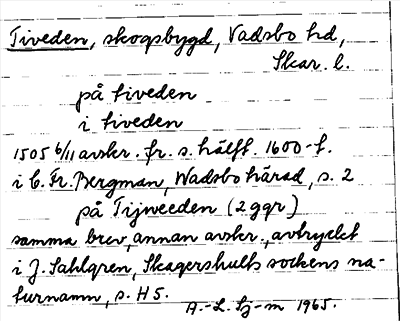 Tiveden, skogsbygd, Vadsbo hd,
Skar. l.
på tiveden
i tiveden
1505 6/11 avskr. fr. s. hälft. 1600-t.
i C. Fr. Bergman, Wadsbo härad, s. 2
på Tijweeden (2 ggr)
samma brev, annan avskr., avtryckt
i J. Sahlgren, Skagershults sockens na-
turnamn, s. H5.
A.-L. Sj-m 1965.